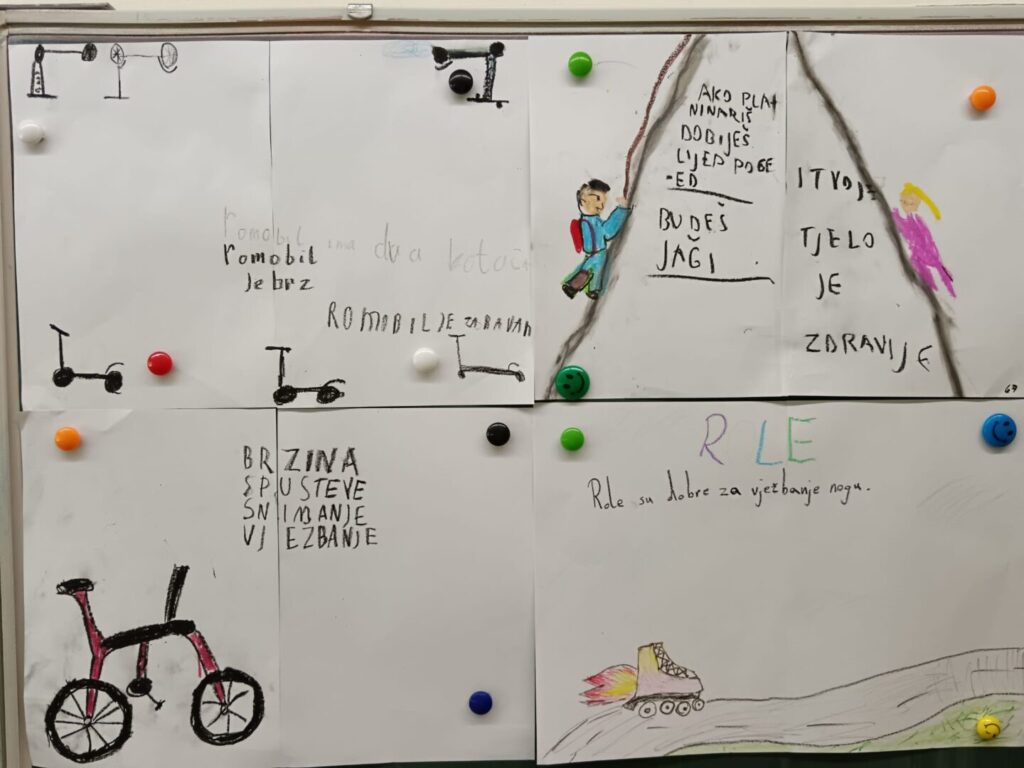 romobil ima dva kotača
romobil
je brz
ROMOBIL JE ZABAVAN
AKO PLA
NINARIŠ
DOBIJEŠ
LIJEP POGE
-ED
BUDEŠ
JAĞI
I TVOJE
TJELO
JE
ZDRAVIJE
BRZINA
SPUSTEVE
SNIMANJE
VJEZBANJE
ROLE
Role su dobre za vježbanje nogu.